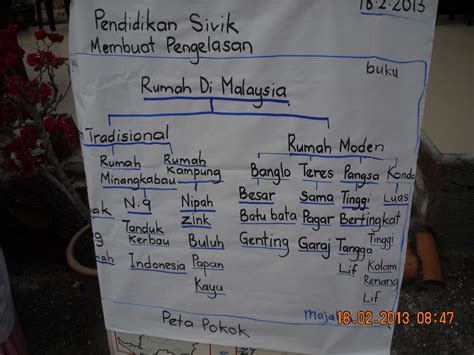 18.2.2013
Pendidikan Sivik
Membuat Pengelasan
buku
Rumah Di Malaysia
Tradisional Rumah Moden
Rumah Minangkabau Rumah Kampung Banglo Teres Pangsa Kondo
N.9 Nipah Besar Sama Tinggi Luas
Tanduk Kerbau zink Batu bata Pagar Bertingkat
Indonesia Buluh Genting Garaj Tangga Tinggi
Papan Lif Kolam Renang
Kayu Lif
Peta Pokok
18.02.2013 08:47